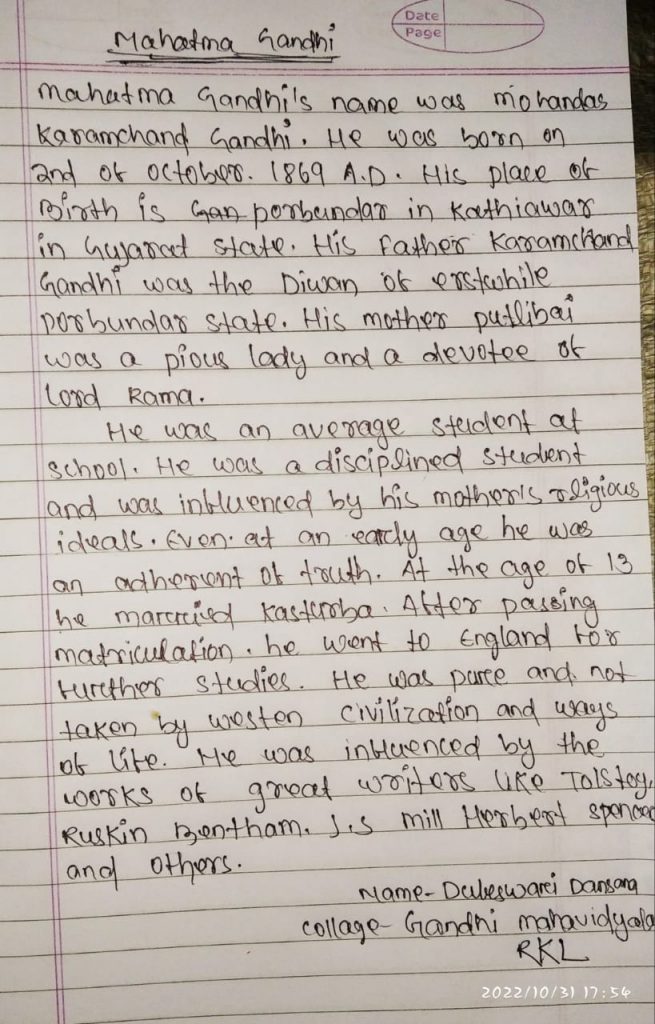 Date
Page
Mahatma Gandhi
Mahatma Gandhi's name was mohandas
Karamchand Gandhi. He was born on
2nd of october. 1869 A.D. His place of
Birth is Gan porbundar in Kathiawar
in Gujarat state. His father Karamchand
Gandhi was the Diwan of erstwhile
porbundar state. His mother putlibai
was a pious lady and a devotee of
Lord Rama.
He was an average student at
school. He was a disciplined student
and was influenced by his mother's religious
ideals. Even. at an early age he was
an adherent of truth. At the age of 13
he married Kasturba. After passing
matriculation. he went to England for
further studies. He was pure and not
taken by westen civilization and ways
of life. He was influenced by the
works of great writers like Tolstoy,
Ruskin Bentham. J.s mill Herbert spencer
and others.
Name- Duleswari Dansana
collage- Gandhi mahavidyala
RKL
2022/10/31 17:54